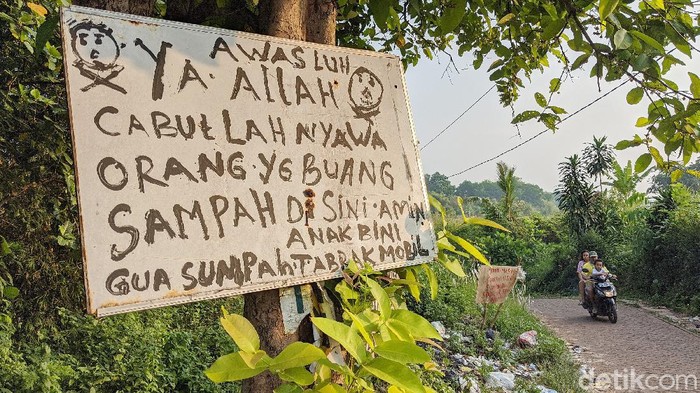 AWAS LUH
YA. ALLAH
CABUTLAH NYAWA
ORANG.YG BUANG
SAMPAH DISINI.AMIN
ANAK BINI
GUA SUMPAH TABRAK MOBIL
detikcom